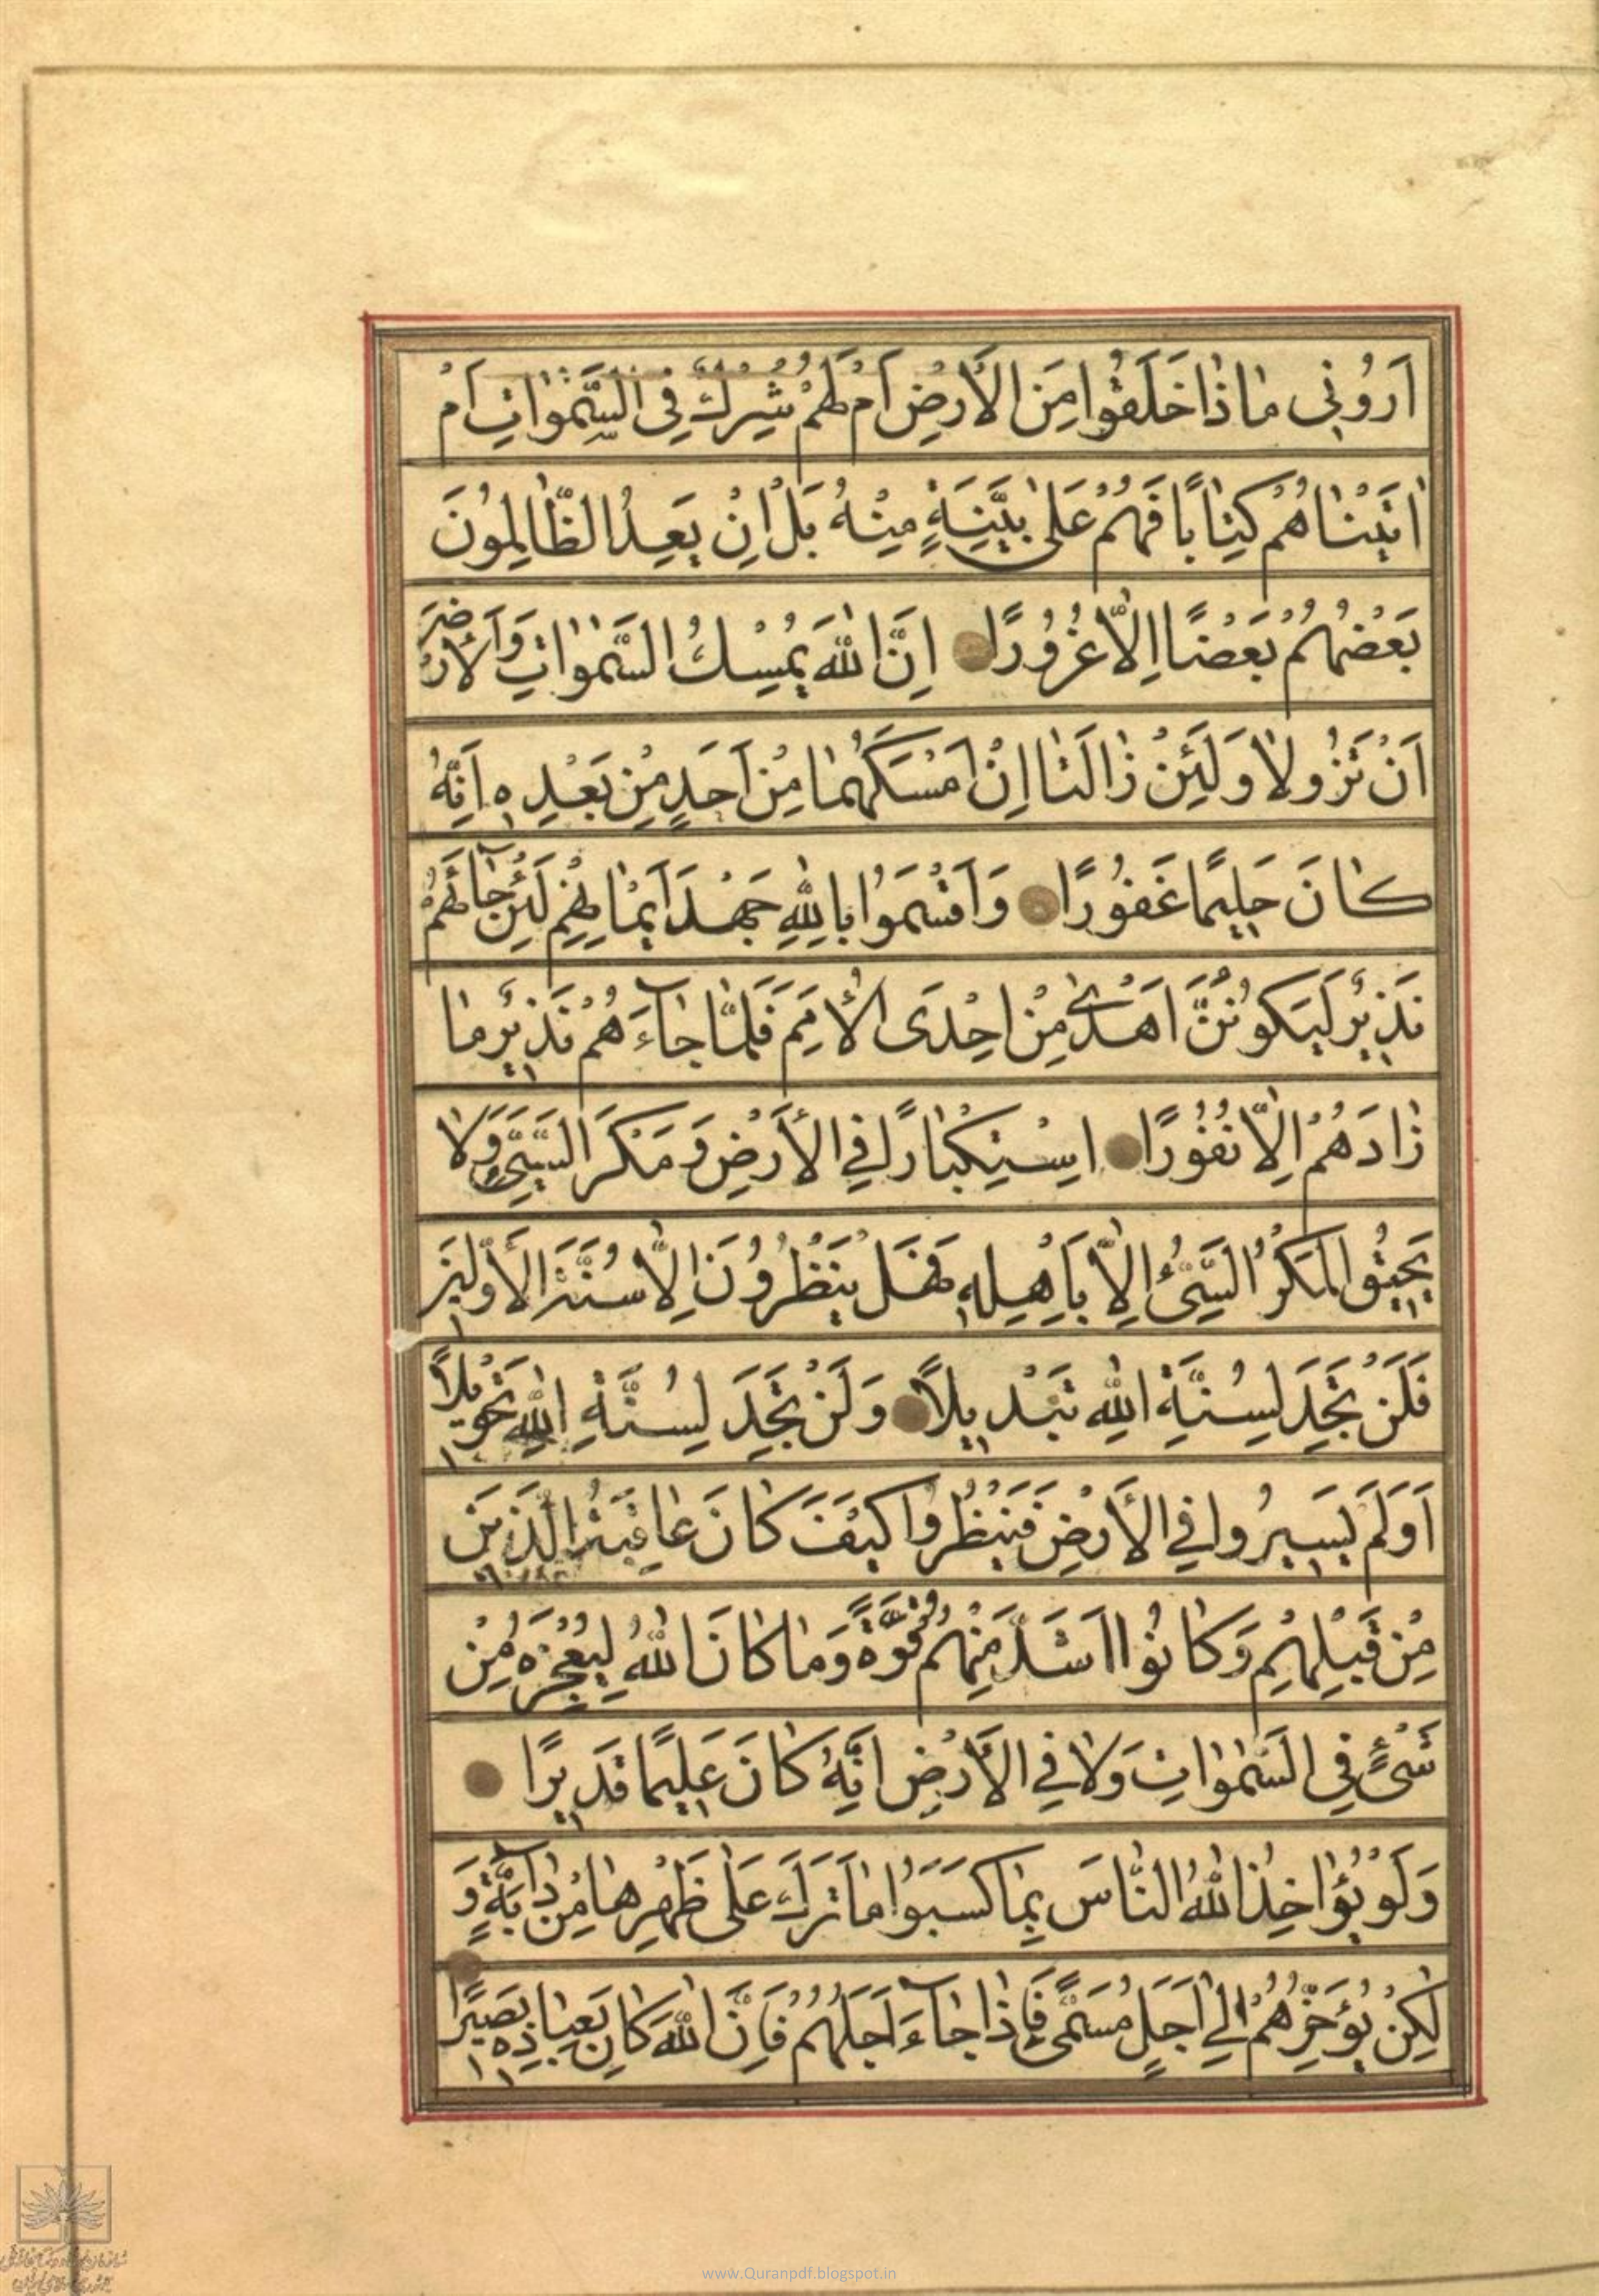 اَرُونِی مٰا ذٰا خَلَقُوا مِنَ الْأَرْضِ اَمْ لَهُمْ شِرْكٌ فِی السَّمٰوٰاتِ اَمْ
اٰتَیْنٰاهُمْ كِتٰابًا فَهُمْ عَلیٰ بَیِّنَةٍ مِنْهُ بَلْ اِنْ یَعِدُ الظّٰالِمُونَ
بَعْضُهُمْ بَعْضًا اِلّٰا غُرُورًا اِنَّ اللّٰهَ یُمْسِكُ السَّمٰوٰاتِ وَالْأَرْضَ
اَنْ تَزُولٰا وَلَئِنْ زٰالَتٰا اِنْ اَمْسَكَهُمٰا مِنْ اَحَدٍ مِنْ بَعْدِهِ اِنَّهُ
كٰانَ حَلِیمًا غَفُورًا وَاَقْسَمُوا بِاللّٰهِ جَهْدَ اَیْمٰانِهِمْ لَئِنْ جٰآئَهُمْ
نَذِیرٌ لَیَكُونُنَّ اَهْدیٰ مِنْ اِحْدَی الْأُمَمِ فَلَمّٰا جٰآءَهُمْ نَذِیرٌ مٰا
زٰادَهُمْ اِلّٰا نُفُورًا اِسْتِكْبٰارًا فِی الْأَرْضِ وَمَكْرَ السَّیِّیِٔ وَلٰا
یَحِیقُ الْمَكْرُ السَّیِّیُٔ اِلّٰا بِاَهْلِهِ فَهَلْ یَنْظُرُونَ اِلّٰا سُنَّتَ الْأَوَّلِینَ
فَلَنْ تَجِدَ لِسُنَّةِ اللّٰهِ تَبْدِیلًا وَلَنْ تَجِدَ لِسُنَّةِ اللّٰهِ تَحْوِیلًا
اَوَلَمْ یَسِیرُوا فِی الْأَرْضِ فَیَنْظُرُوا كَیْفَ كٰانَ عٰاقِبَةُ الَّذِینَ
مِنْ قَبْلِهِمْ وَكٰانُوا اَشَدَّ مِنْهُمْ قُوَّةً وَمٰا كٰانَ اللّٰهُ لِیُعْجِزَهُ مِنْ
شَیْءٍ فِی السَّمٰوٰاتِ وَلٰا فِی الْأَرْضِ اِنَّهُ كٰانَ عَلِیمًا قَدِیرًا
وَلَوْ یُؤٰاخِذُ اللّٰهُ النّٰاسَ بِمٰا كَسَبُوا مٰا تَرَكَ عَلیٰ ظَهْرِهٰا مِنْ دٰآبَّةٍ وَ
لٰكِنْ یُؤَخِّرُهُمْ اِلیٰ اَجَلٍ مُسَمًّی فَاِذٰا جٰآءَ اَجَلُهُمْ فَاِنَّ اللّٰهَ كٰانَ بِعِبٰادِهِ بَصِیرًا
www.Quranpdf.blogspot.in